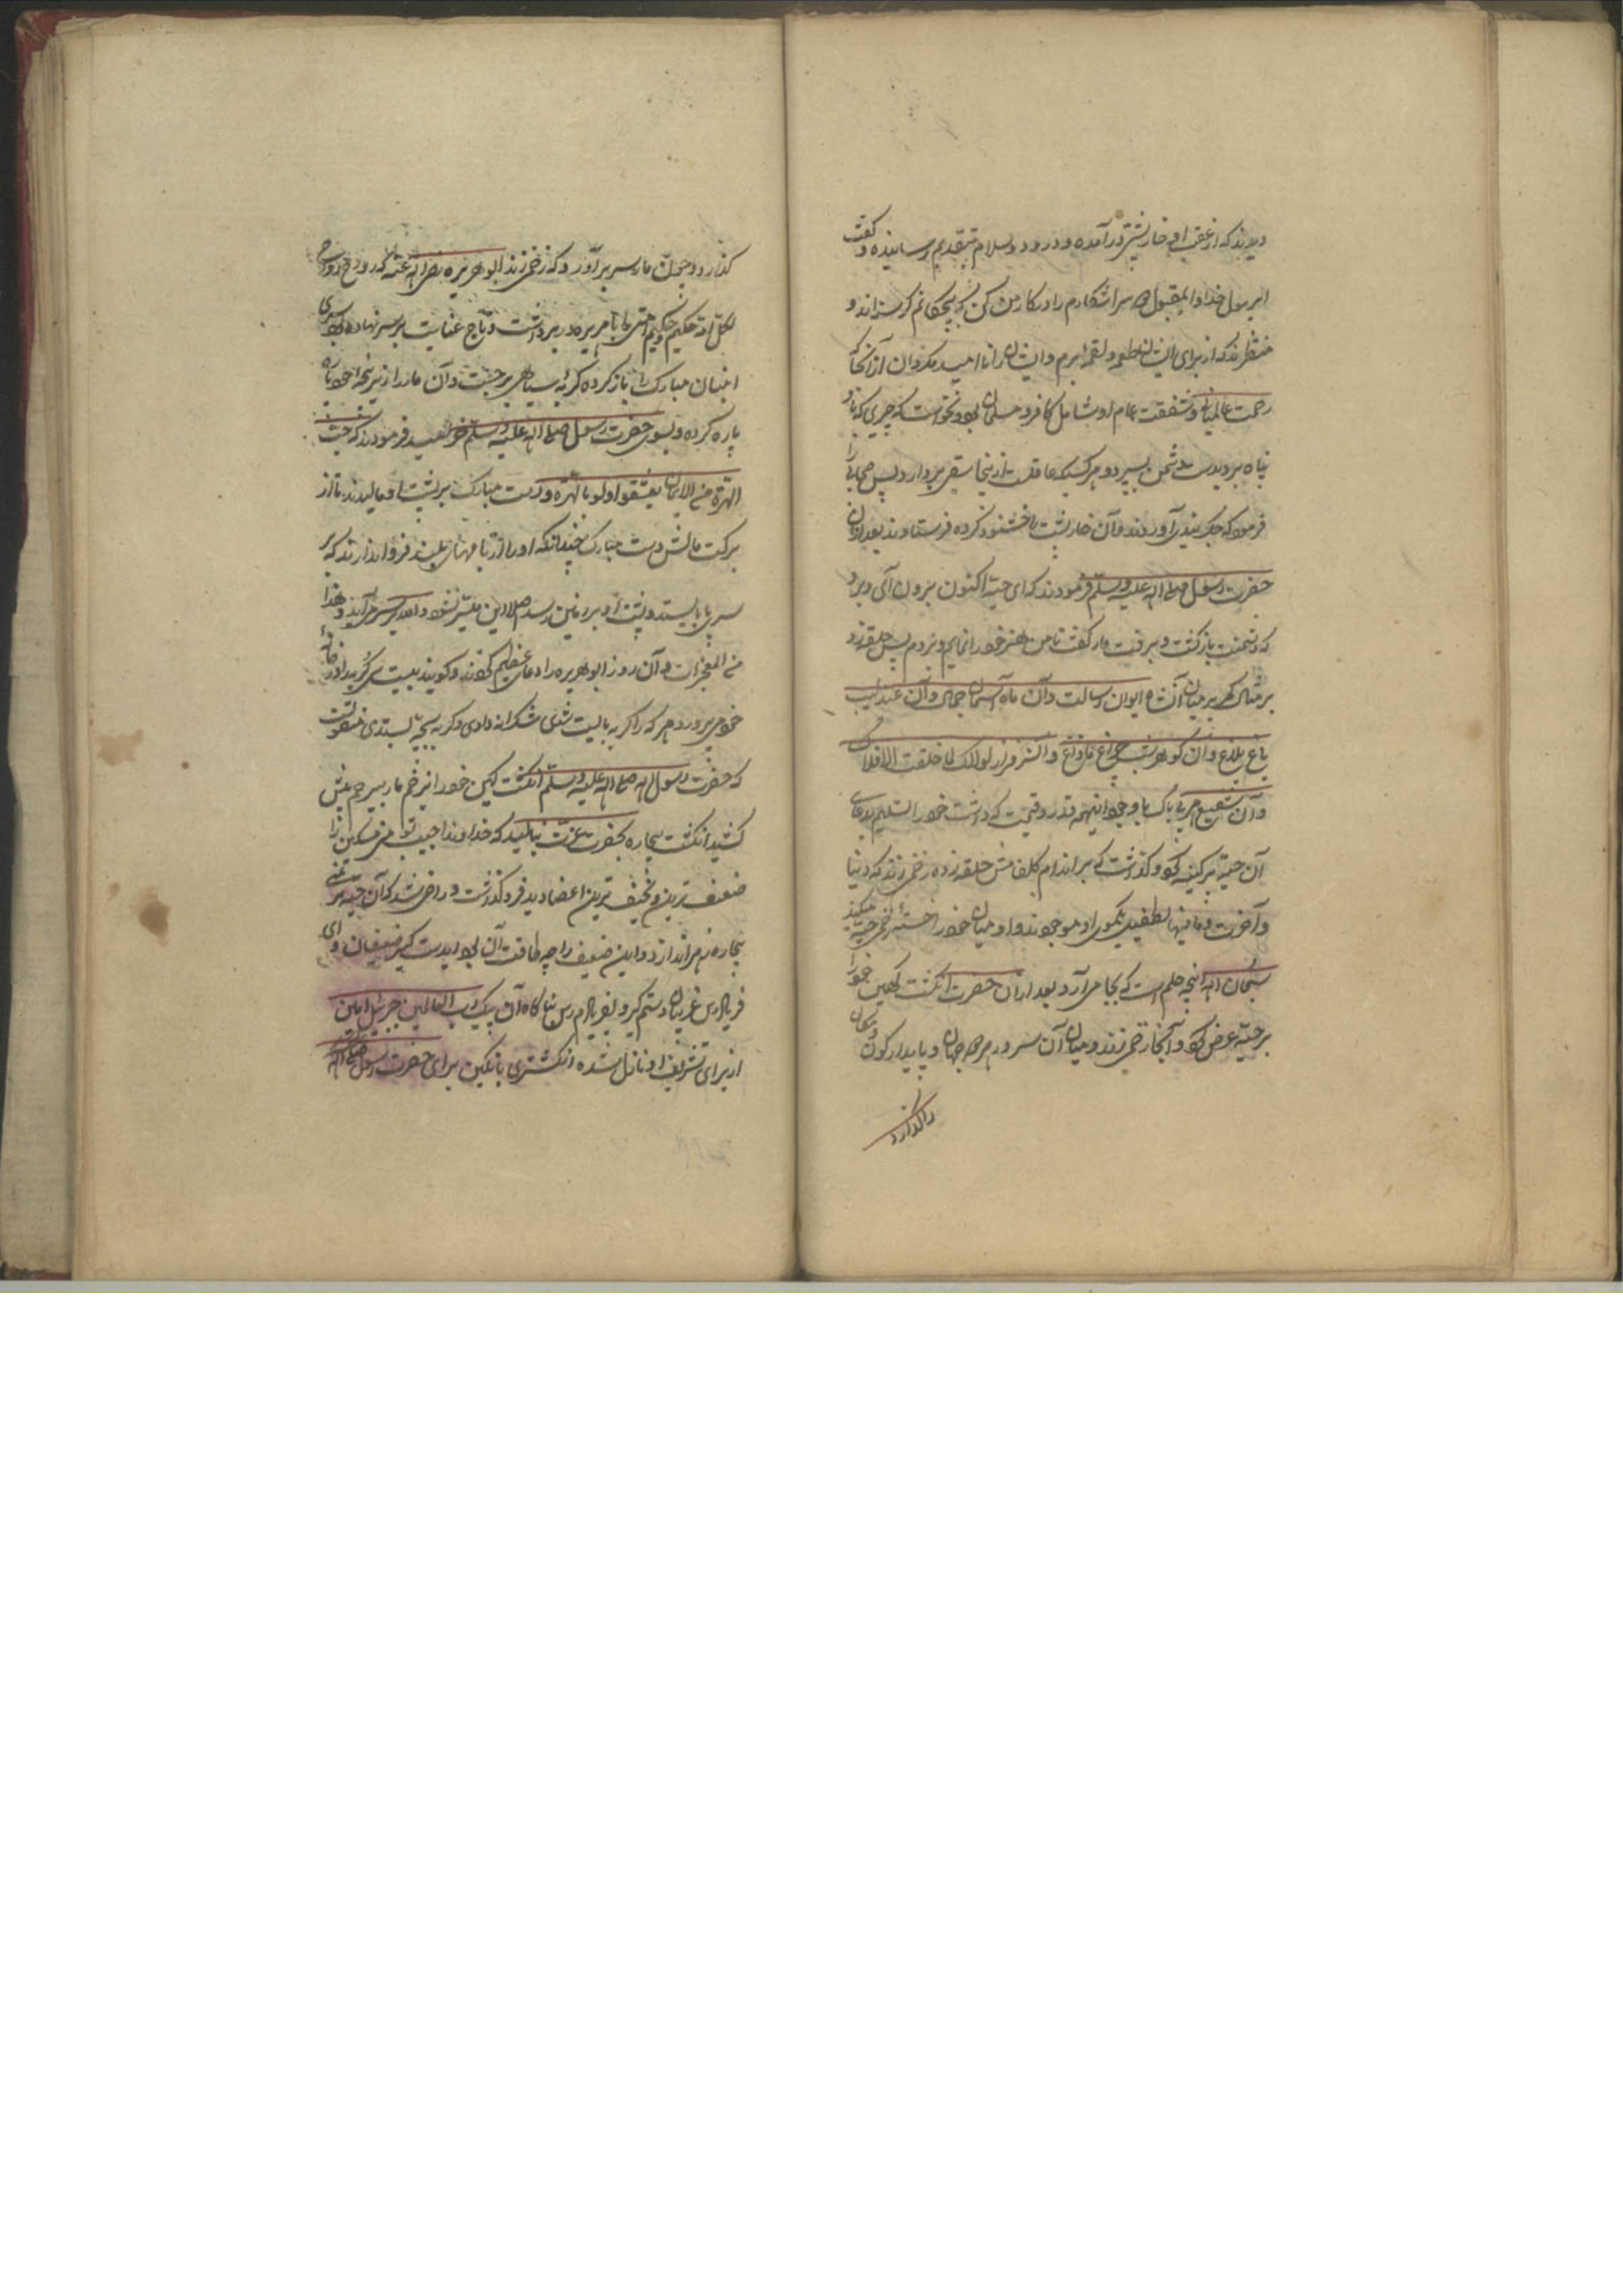 دیدند که از عقب او خارپشتی درآمده و درود و سلام بتقدیم رسانیده و گفت
ای رسول خدا و ای مقبول سرا شکارم را در کار من کن که بچگانم گرسنه‌اند و
منتظرند که از برای ایشان طعمه و لقمه برم و ایشان را ناامید مگردان از آنجا که
رحمت عالمیان و شفقت عام او شامل کافر و مسلمان بود نخواست که چیزی که باو
پناه برد بدست دشمن بسپرد و هر کسیکه عاقل از ینجا سبقی بردارد پس صحابه را
فرمود که جگربندی آوردند و آن خارپشت را خشنود کرده فرستادند بعد ازان
حضرت رسول صلی الله علیه وسلم فرمودند که ای حیّه اکنون برون آی و برو
که دشمنت بازگشت و برفت مار گفت تا من هنر خود را نمایم و نروم پس حلقه زد
بر مثال کمر بر میان آن شاه ایوان رسالت و آن ماه آسمان جمال و آن عندلیب
باغ بلاغ و آن گوهر شب چراغ مازاغ و آن سرفراز لولاک لما خلقت الافلاک
و آن شفیع هر بیباک با وجود اینهمه قدر و قیمت که داشت خود را تسلیم
آن حیّه پرکینه کرد و گذشت که بر اندام حلقه زده زخمی زند که دنیا
و آخرت و مافیها بطفیل یکموی او موجودند و او میان خود را خسته زخم حیّه میکند
سبحان الله اینچه حلم است که بجا می‌آرد بعد ازان حضرت انگشت کهین خود را
بر حیّه عرض کرد و آنجا زخمی زند و میان آن سرور هر دو جهان و پایدار کون و مکان
را گذارد
گذارد و چون مار سر برآورد که زخمی زند ابوهریره رضی الله عنه که
لکل امة حکیم و حکیم امتی ابا هریره در بر داشت و تاج عنایت بر سر نهاده
انبان مبارک را باز کرده گربه سیاهی برجست و آن مار را از پنجه خود پاره
پاره کرده و بسوی حضرت رسول صلی الله علیه وسلم فرمودند که حبّ
الهرّة من الایمان و دست مبارک بر پشت او مالیدند تا از
برکت مالش دست مبارک چندانکه او را از بامهای بلند فرو اندازند که بر
سر پا بایستد و پشت او بر زمین نرسد اصلا این میسر نشود و هذا
من المعجزات و آن روز ابوهریره را دعای عظیم کردند و گویند بیست گربه او در خانهٔ
خود می‌پرورد هر که را گربه بایست شدی شکرانه دادی و گربه بچه بستدی منقولست
که حضرت رسول الله صلی الله علیه وسلم انگشت کهین خود را زخم مار بیرحم پیش
کشید انگشت بیچاره بحضرت عزت بنالید که خداوندا حبیب تو من مسکین را
ضعیف‌ترین و نحیف‌ترین اعضا دید فرو گذاشت و راضی شد که آن حیّه بر
بیچاره زهر اندازد و این ضعیف را چه طاقت آن بود ای دستگیر ضعیفان و ای
فریادرس غریبان دستم گیر و بفریادم رس ناگاه آن پیک رب العالمین جبرئیل امین
از برای تشریف او نازل شده انگشتری با نگین برای حضرت رسول صلی الله